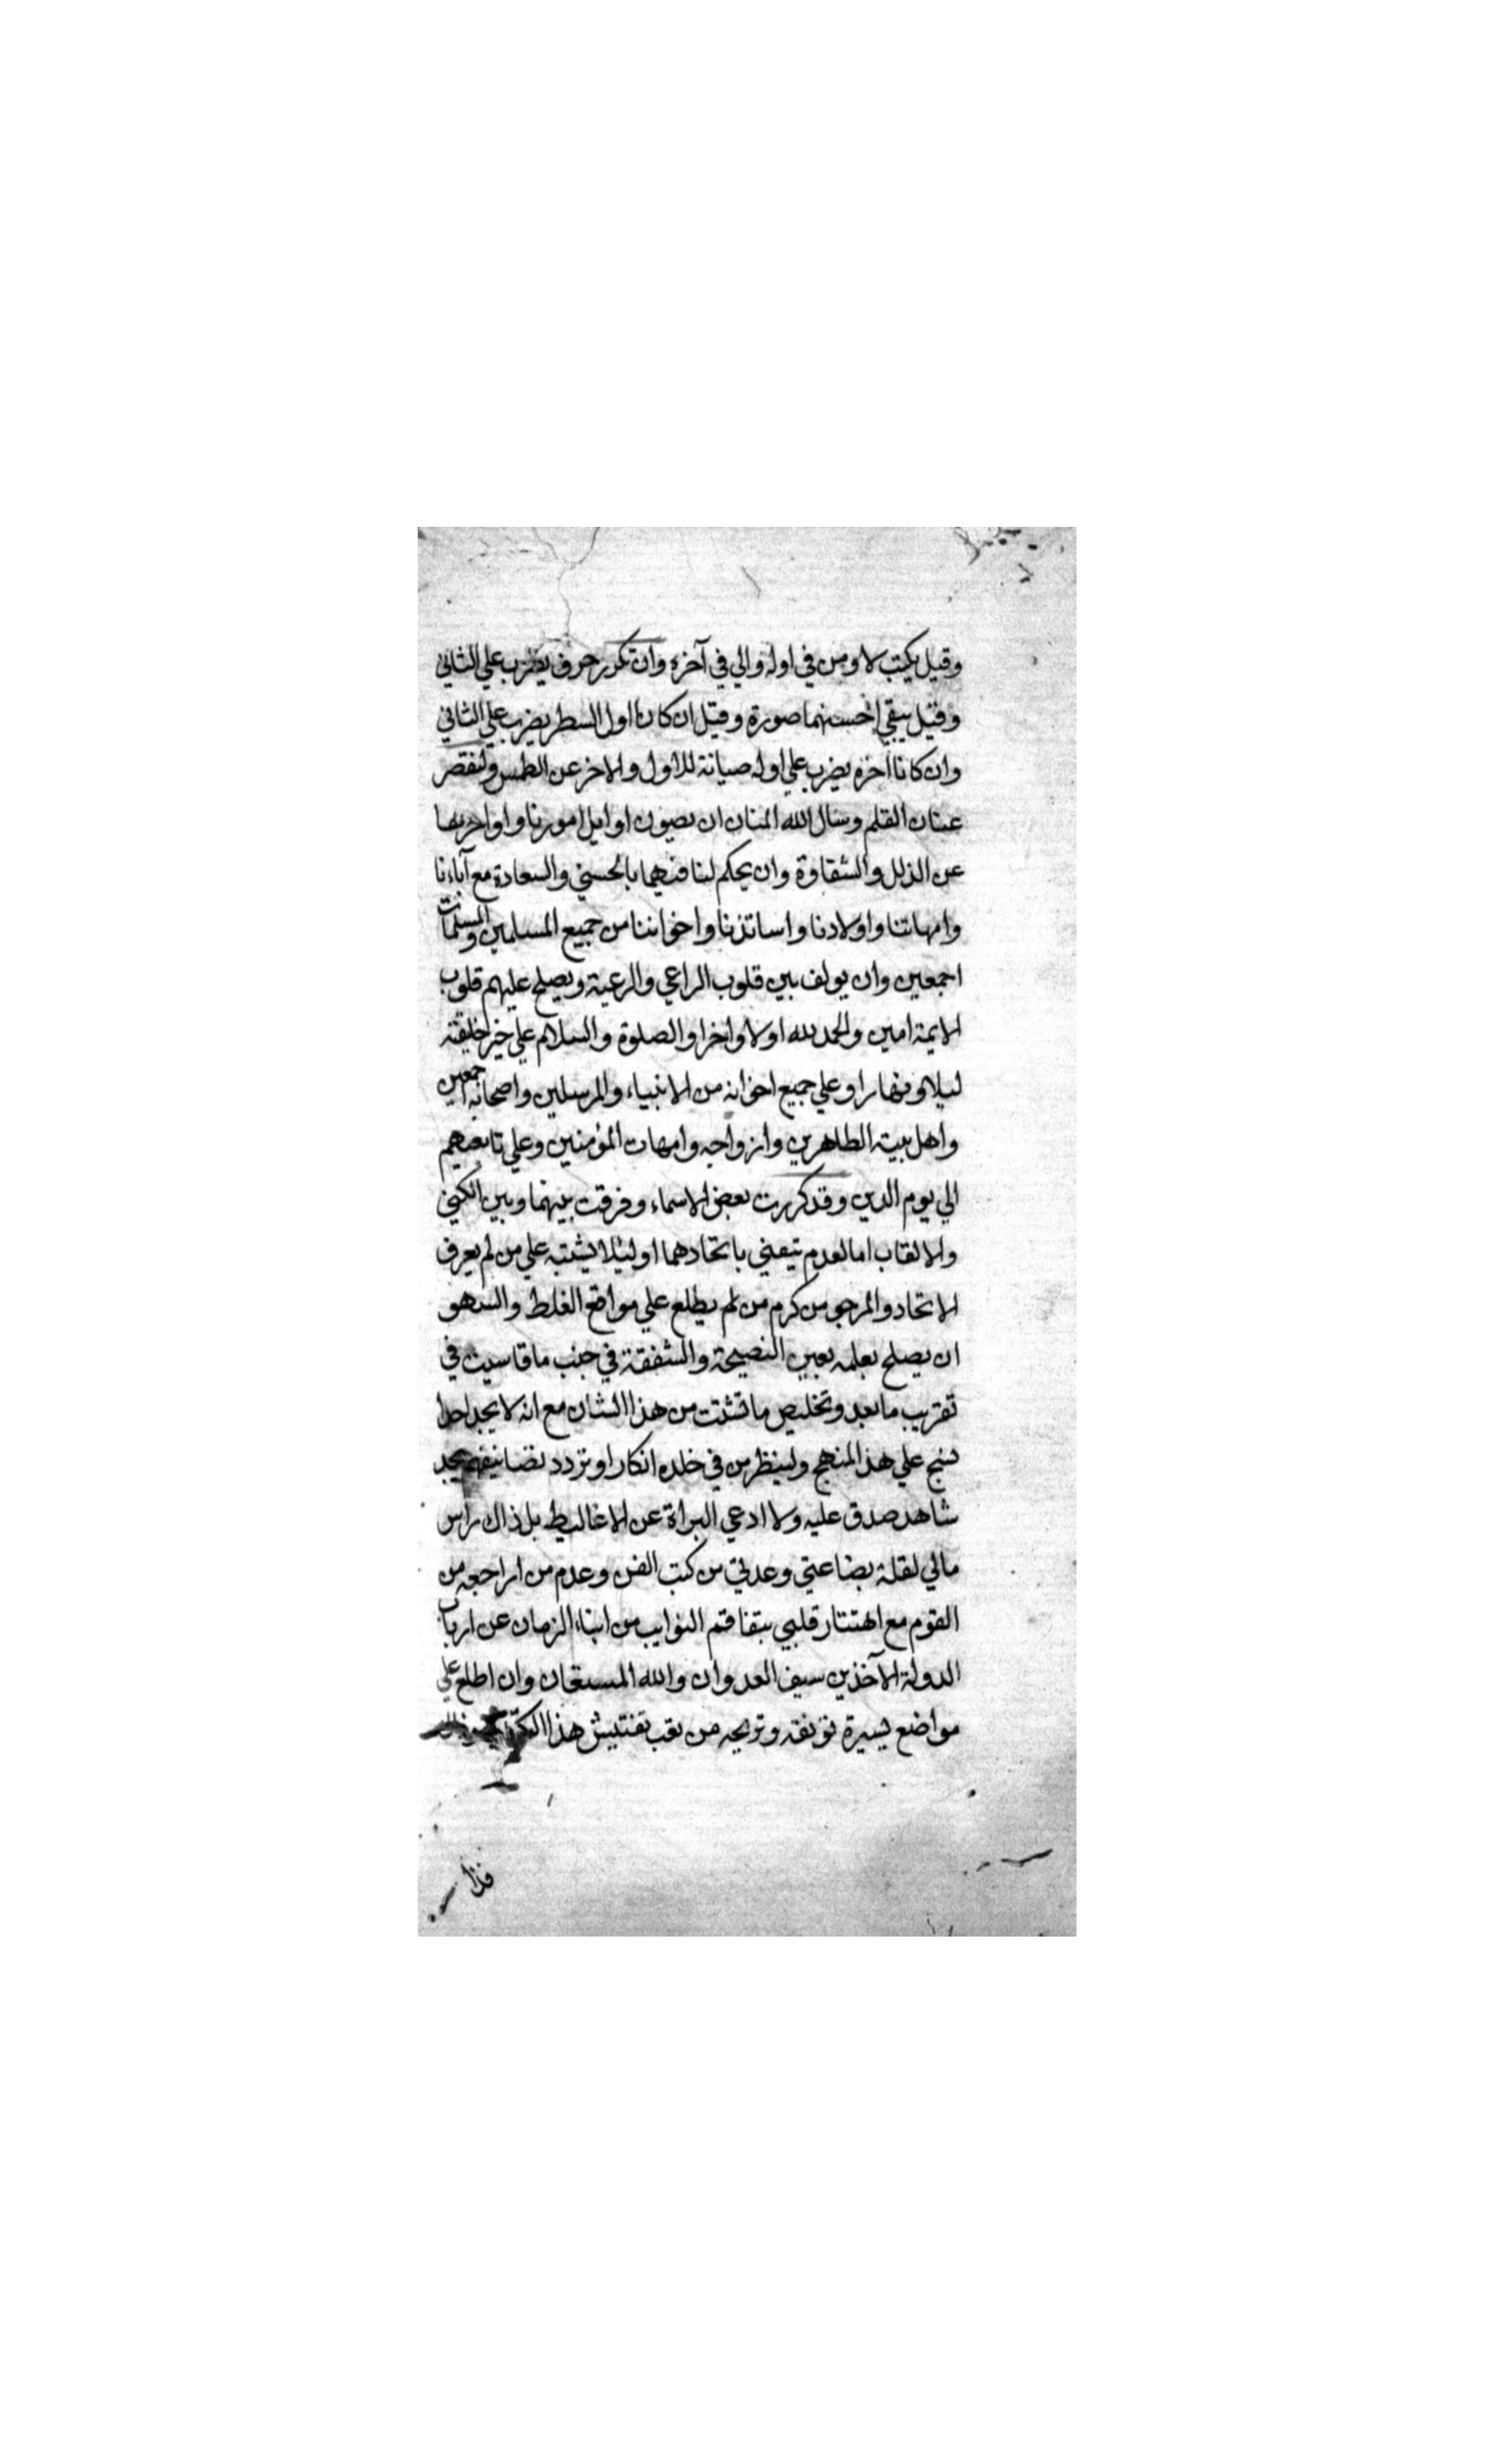 وقيل يكتب لا ومن في اوله والي في آخره وان تكرر حرف يضرب علي الثاني
وقيل يبقي احسنهما صورة وقيل ان كانا اول السطر يضرب علي الثاني
وان كانا آخره يضرب علي اوله صيانة للاول والاخر عن الطمس ولنقصر
عنان القلم وسال الله المنان ان يصون اوايل امورنا واواخرها
عن الذلل والشقاوة وان يحكم لنا فيهما بالحسني والسعادة مع آباءنا
وامهاتنا واولادنا واساتذنا واخواننا من جميع المسلمين والمسلمات
اجمعين وان يولف بين قلوب الراعي والرعية ويصلح عليهم قلوب
الايمة امين والحمد لله اولا واخرا والصلوة والسلام علي خير خليقته
ليلا ونهارا وعلي جميع اخوانه من الانبياء والمرسلين واصحابه اجمعين
واهل بيته الطاهرين وازواجه وامهات المؤمنين وعلي تابعيهم
الي يوم الدين وقد كررت بعض الاسماء وفرقت بينهما وبين الكني
والالقاب اما لعدم تيقني باتحادهما او ليئلا يشتبه علي من لم يعرف
الاتحاد والمرجو من كرم من لم يطلع علي مواقع الغلط والسهو
ان يصلح بعلمه بعين النصيحة والشفقة في جنب ما قاسيت في
تقريب ما بعد وتخليص ما تشتت من هذا الشان مع انه لا يجد احدا
نسج علي هذ المنهج ولينظر من في خلده انكار او تردد تصانيفهم يجد
شاهد صدق عليه ولا ادعي البراة عن الاغاليط بل ذاك راس
مالي لقلة بضاعتي وعدلتي من كتب الفن وعدم من اراجعه من
القوم مع اهتتار قلبي بتفاقم النوايب من ابناء الزمان عن ارباب
الدولة الآخذين سيف العدوان والله المستعان وان اطلع علي
مواضع يسيرة توثقه وتريحه من تعب تفتيش هذا
فذا